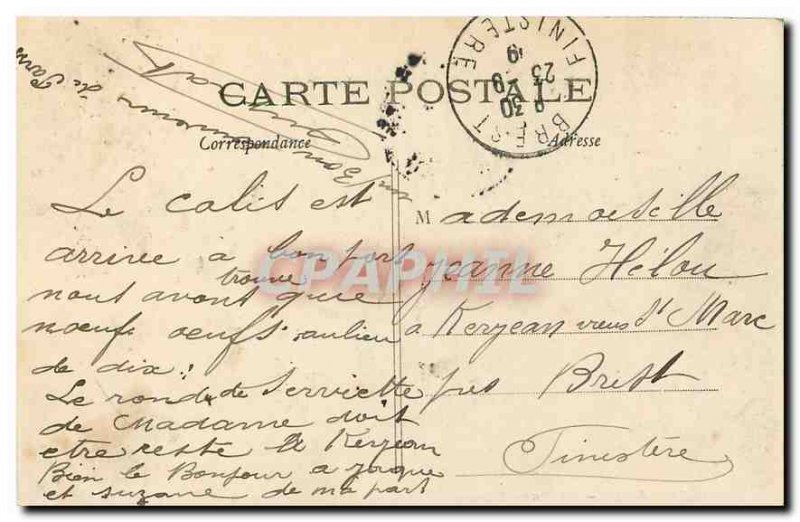 CARTE POSTALE
Correspondance
Adresse
BREST
FINISTERE
Le colis est
arrive à bon port
trouve
nous avont que
nœufs oeufs aulieu
de dix:
Le rond de Serviette
de Madame doit
etre reste à Kerjean
Bien le Bonjour a Jacque
et suzane de ma part
de Paris
Mademoiselle
jeanne Hélou
a Kerjean vreus St Marc
pres Brest
Finistère
CPAPHIL